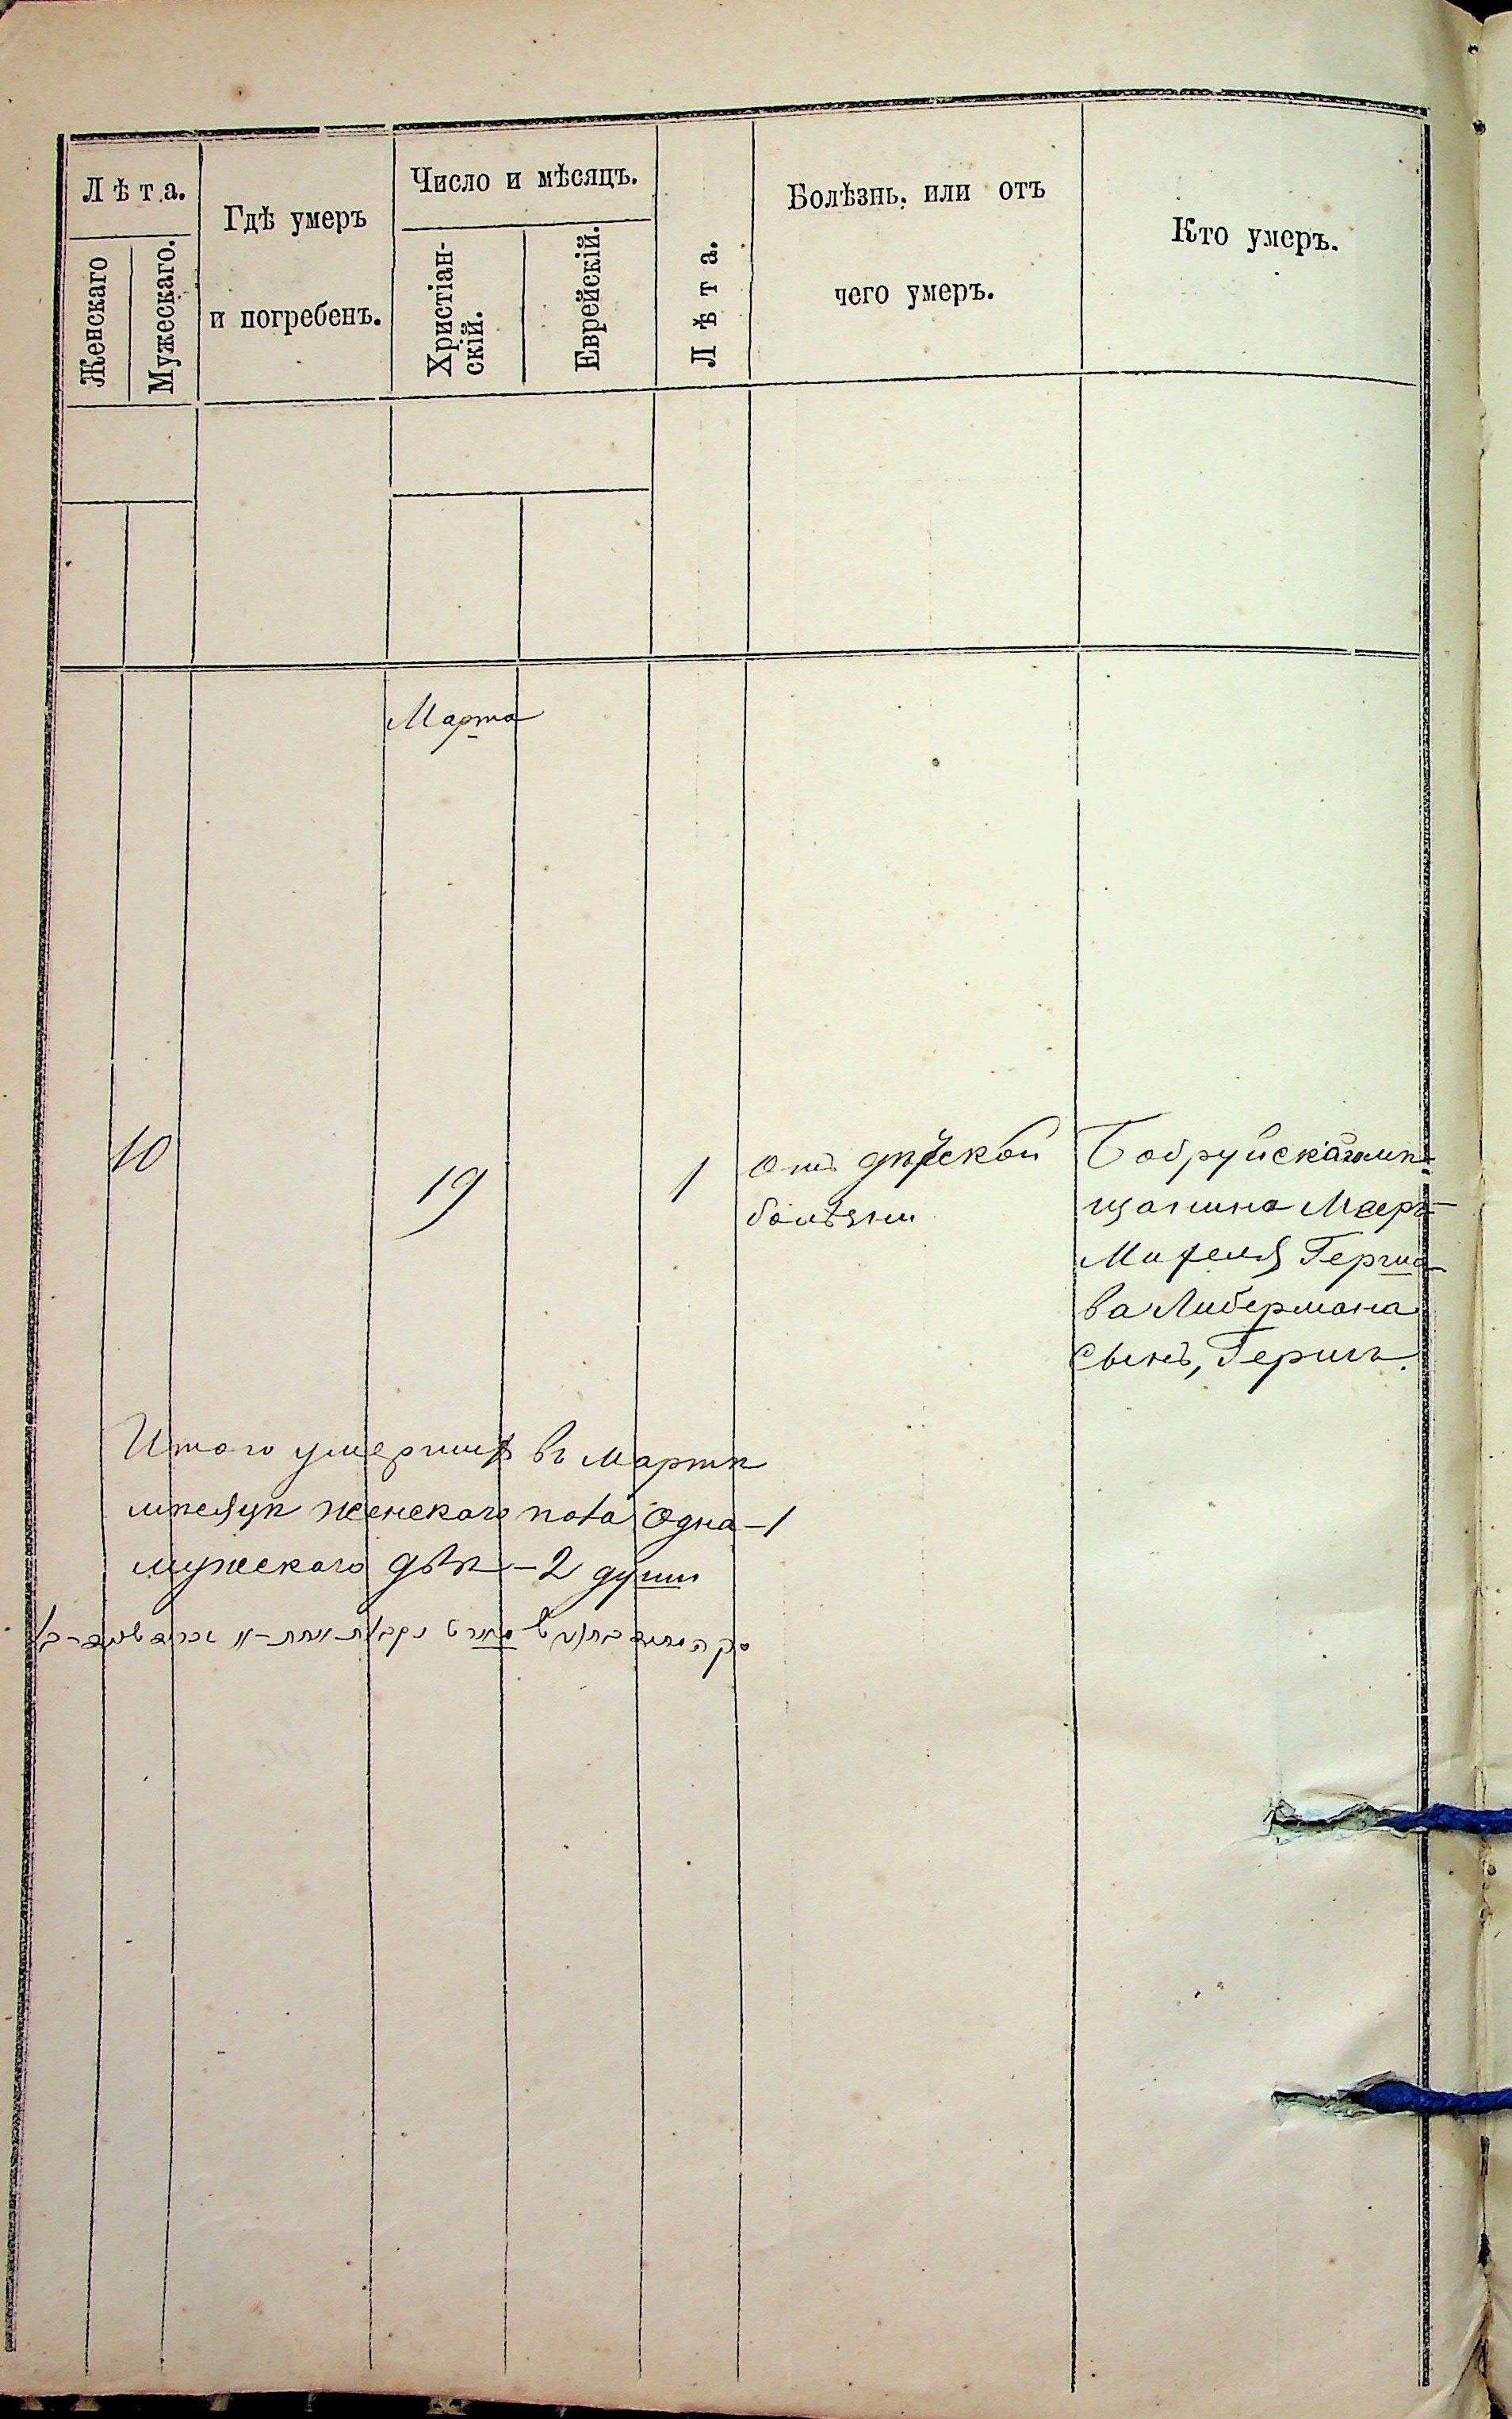 Лѣта.
Женскаго
Мужескаго.
Гдѣ умеръ
и погребенъ.
Число и мѣсяцъ.
Христіан-
скій.
Еврейскій.
Лѣта.
Болѣзнь, или отъ
чего умеръ.
Кто умеръ.
Марта
10
19
1
Отъ дѣтской
болѣзни
Бобруйскаго мѣ-
щанина Меера
Михеля Герша-
ва Либермана
Сынъ, Гершъ.
Итого умершихъ въ Мартѣ
мѣсяцѣ женскаго пола одна-1
мужескаго двѣ-2 души